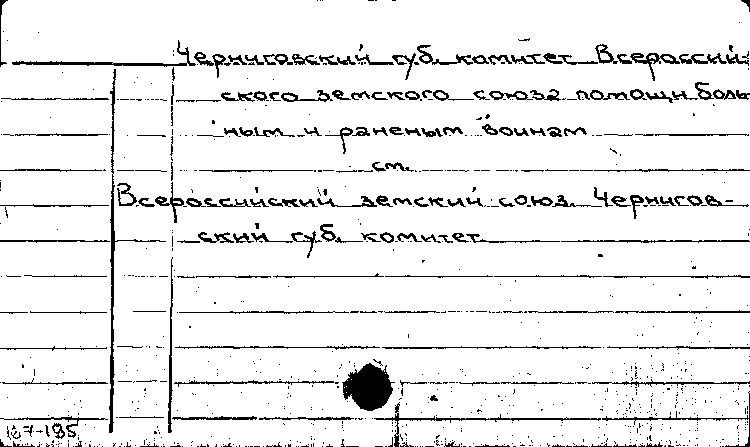 Черниговский губ. комитет Всероссий-
ского земского союза помощи боль
ным и раненым воинам
см.
Всероссийский земский союз. Чернигов-
ский губ. комитет.
167-185